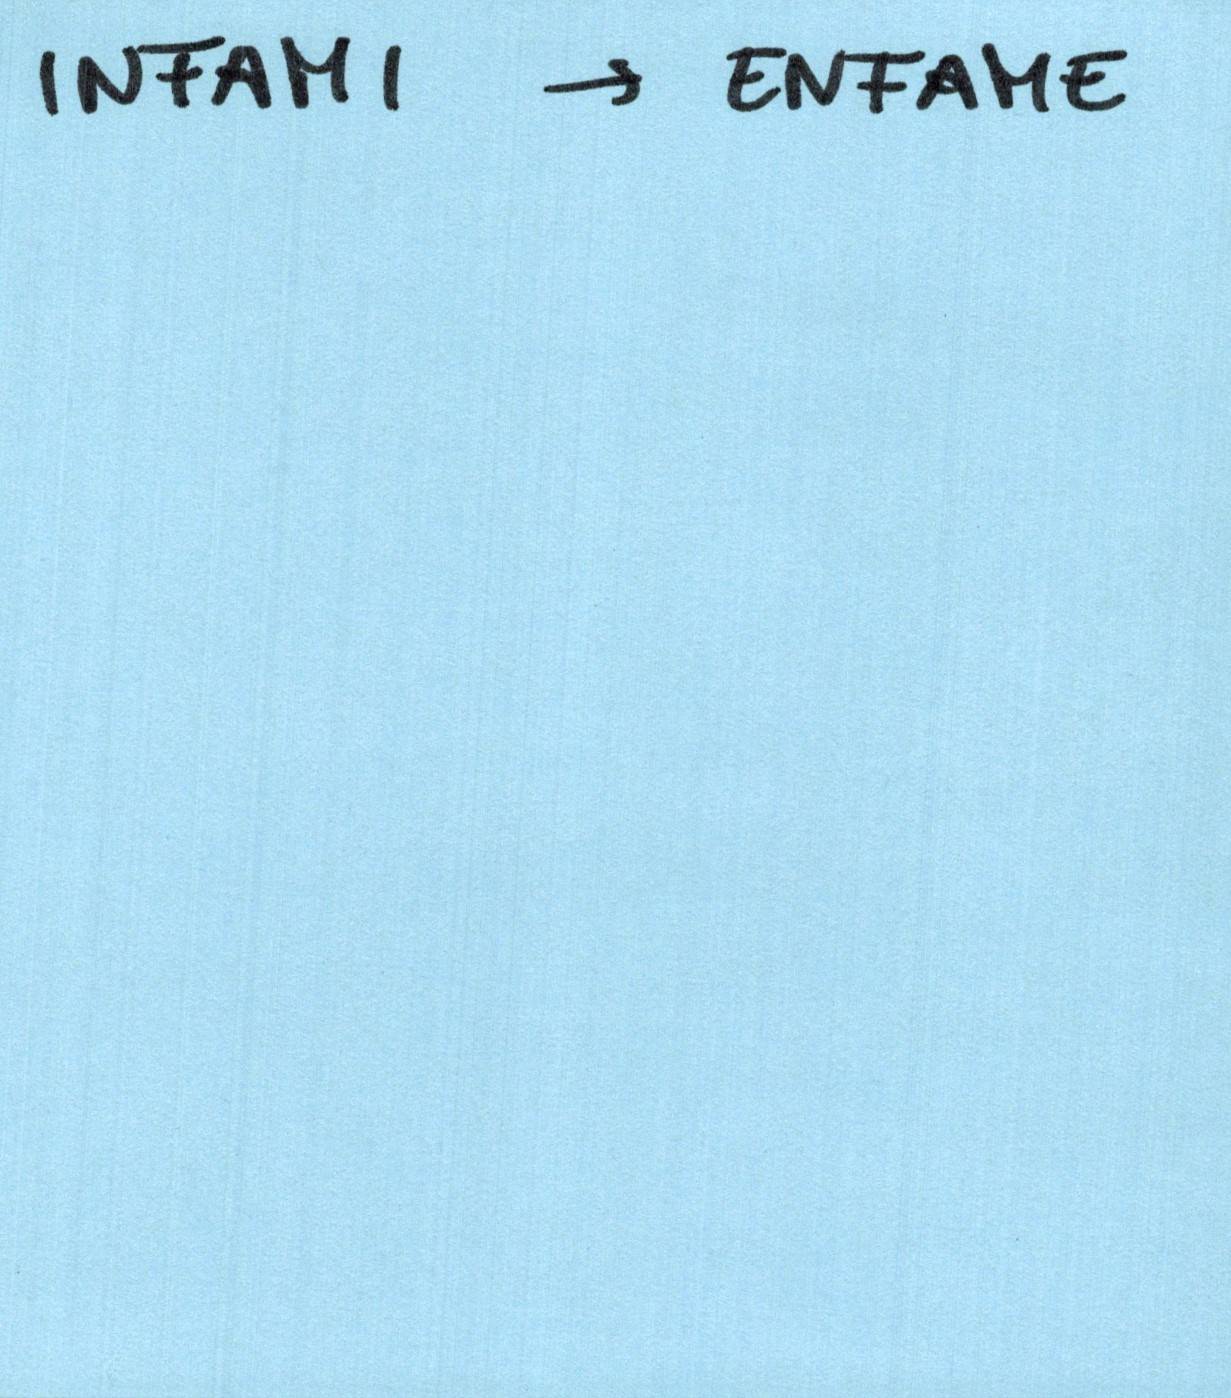 INFAMI → ENFAME